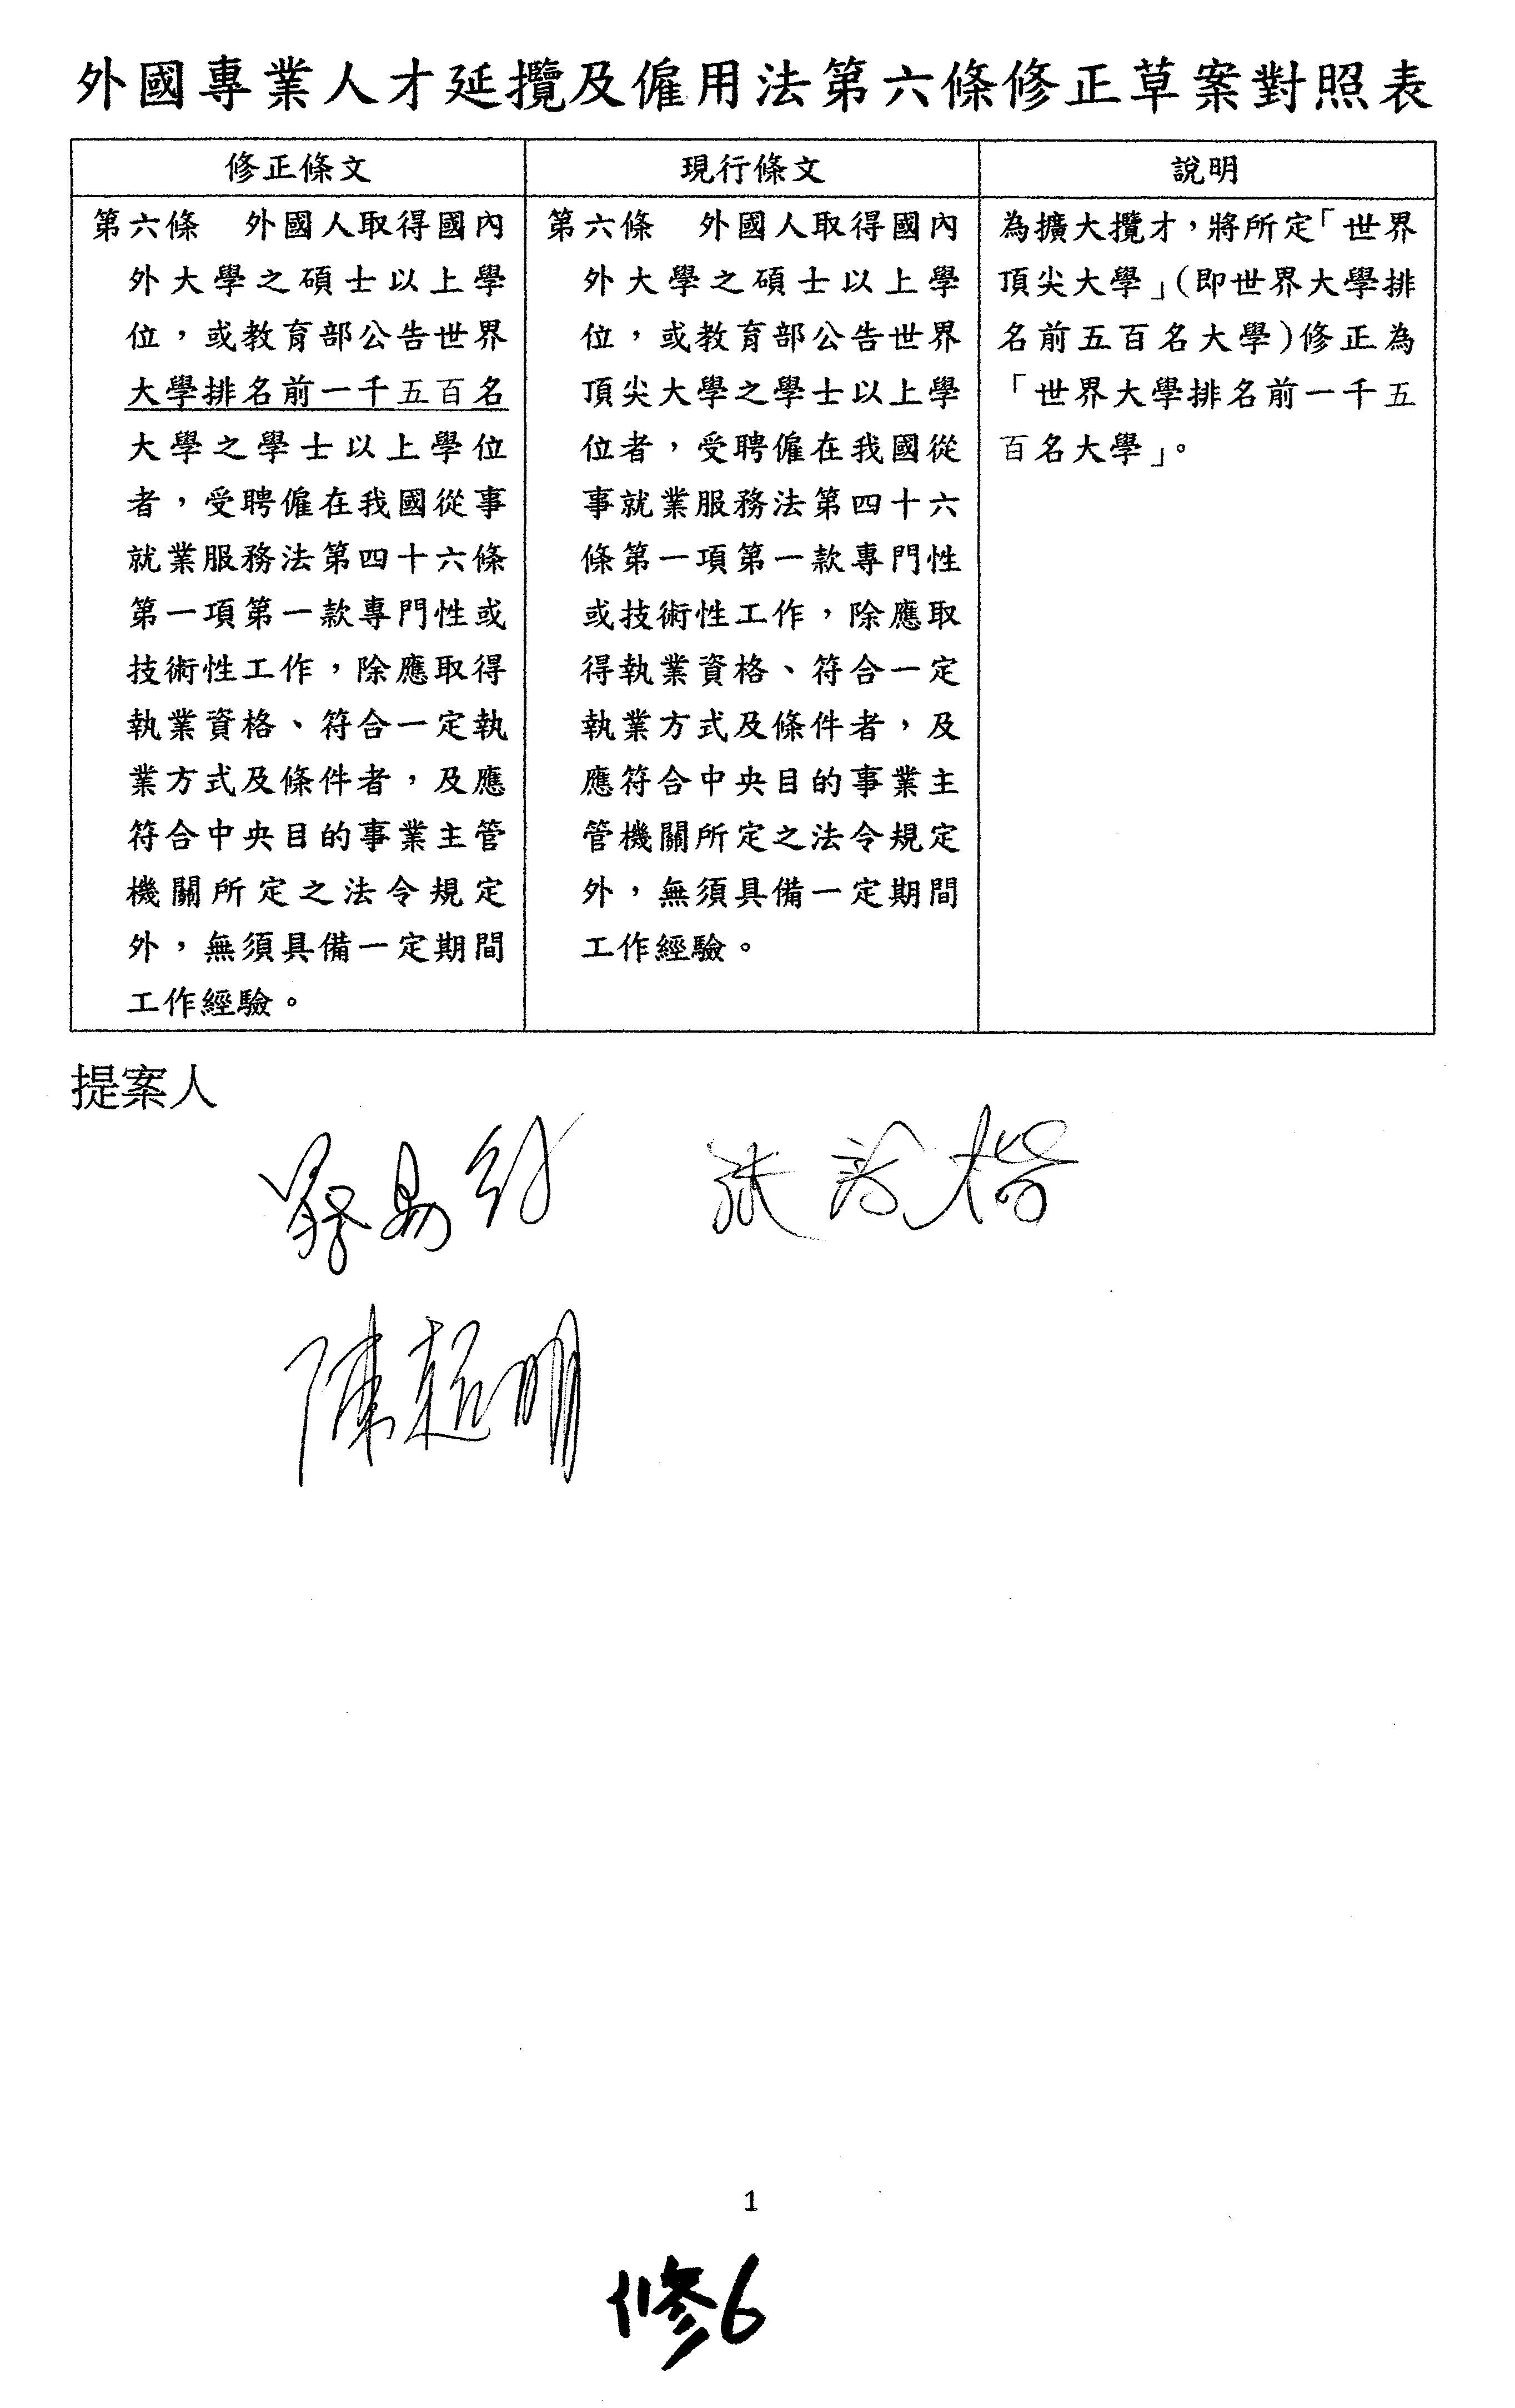 外國專業人才延攬及僱用法第六條修正草案對照表
修正條文
第六條　外國人取得國內
外大學之碩士以上學
位，或教育部公告世界
大學排名前一千五百名
大學之學士以上學位
者，受聘僱在我國從事
就業服務法第四十六條
第一項第一款專門性或
技術性工作，除應取得
執業資格、符合一定執
業方式及條件者，及應
符合中央目的事業主管
機關所定之法令規定
外，無須具備一定期間
工作經驗。
現行條文
第六條　外國人取得國內
外大學之碩士以上學
位，或教育部公告世界
頂尖大學之學士以上學
位者，受聘僱在我國從
事就業服務法第四十六
條第一項第一款專門性
或技術性工作，除應取
得執業資格、符合一定
執業方式及條件者，及
應符合中央目的事業主
管機關所定之法令規定
外，無須具備一定期間
工作經驗。
說明
為擴大攬才，將所定「世界
頂尖大學」（即世界大學排
名前五百名大學）修正為
「世界大學排名前一千五
百名大學」。
提案人
陳超明
1
修6